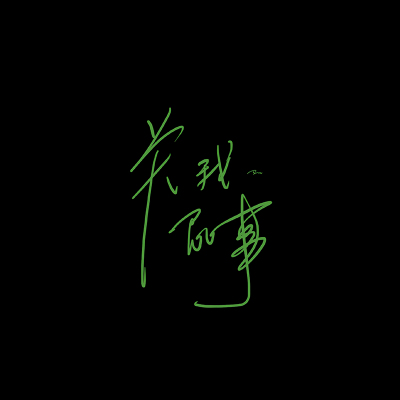 关我~
屁事